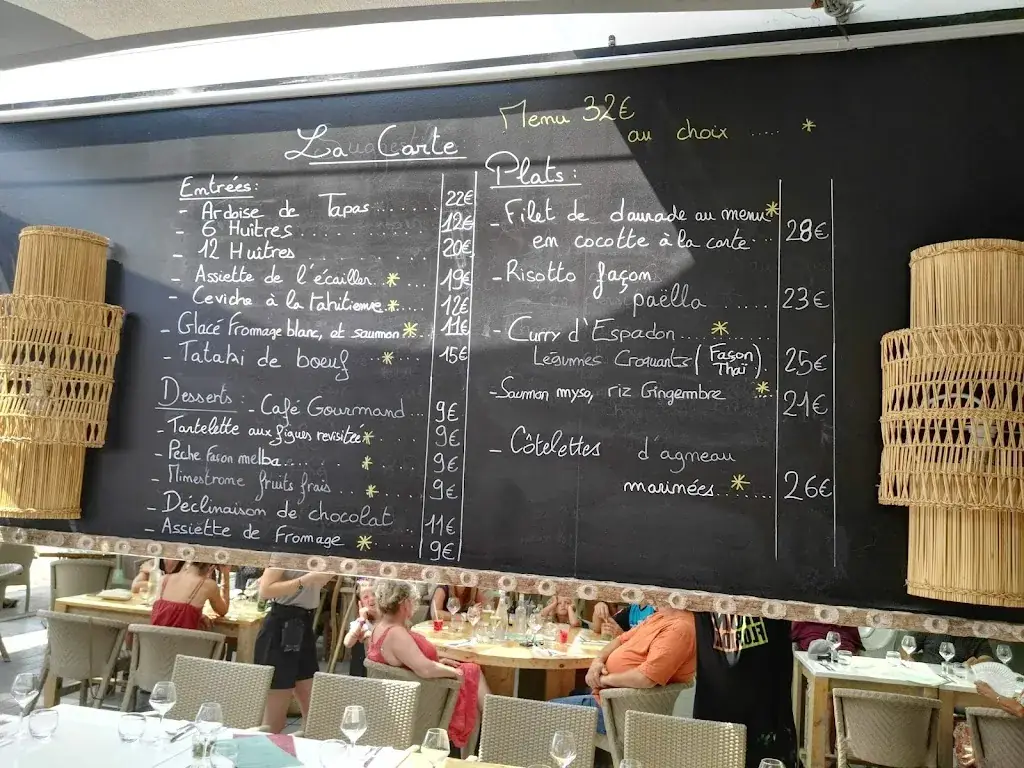 Menu 32€
au choix ..... *
La Carte
Entrées:
- Ardoise de Tapas....... 22€
- 6 Huîtres............ 12€
- 12 Huîtres.......... 20€
- Assiette de l'écailler.. * ..... 19€
- Ceviche à la tahitienne.. * .... 12€
- Glacé fromage blanc, et saumon * ... 11€
- Tataki de boeuf * ..... 15€
Desserts: - Café Gourmand... 9€
- Tartelette aux figues revisitée * ..... 9€
- Pêche façon melba.... * ..... 9€
- Minestrome fruits frais... * ..... 9€
- Déclinaison de chocolat ... 11€
- Assiette de Fromage * ..... 9€
Plats:
- Filet de daurade au menu *
en cocotte à la carte... 28€
- Risotto façon
paëlla ..... 23€
- Curry d'Espadon.... * .....
Légumes Croquants (Façon Thaï). 25€
- Saumon myso, riz Gingembre * .. 21€
- Côtelettes d'agneau
marinées.. * ..... 26€